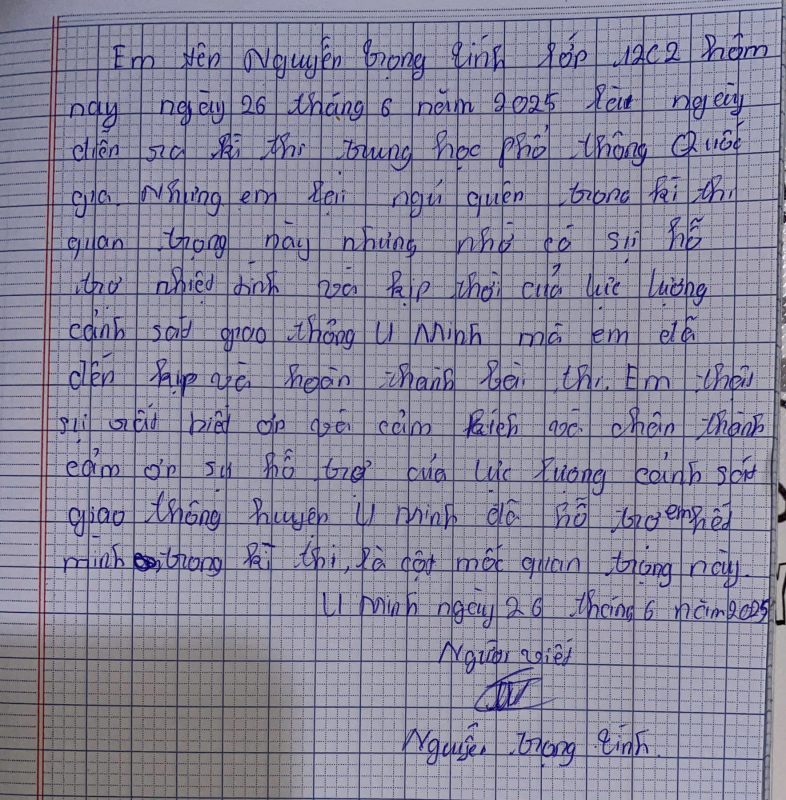 Em tên Nguyễn trọng tính lớp 12C2 hôm
nay ngày 26 tháng 6 năm 2025 là ngày
diễn ra kì thi trung học phổ thông Quốc
gia. Nhưng em lại ngủ quên trong kì thi
quan trọng này nhưng nhờ có sự hỗ
trợ nhiệt tình và kịp thời của lực lượng
cảnh sát giao thông U Minh mà em đã
đến kịp và hoàn thành bài thi. Em thật
sự rất biết ơn và cảm kích và chân thành
cảm ơn sự hỗ trợ của lực lượng cảnh sát
giao thông huyện U Minh đã hỗ trợ em hết
mình trong kì thi, là cột mốc quan trọng này.
U Minh ngày 26 tháng 6 năm 2025
Người viết
Nguyễn trọng tính.